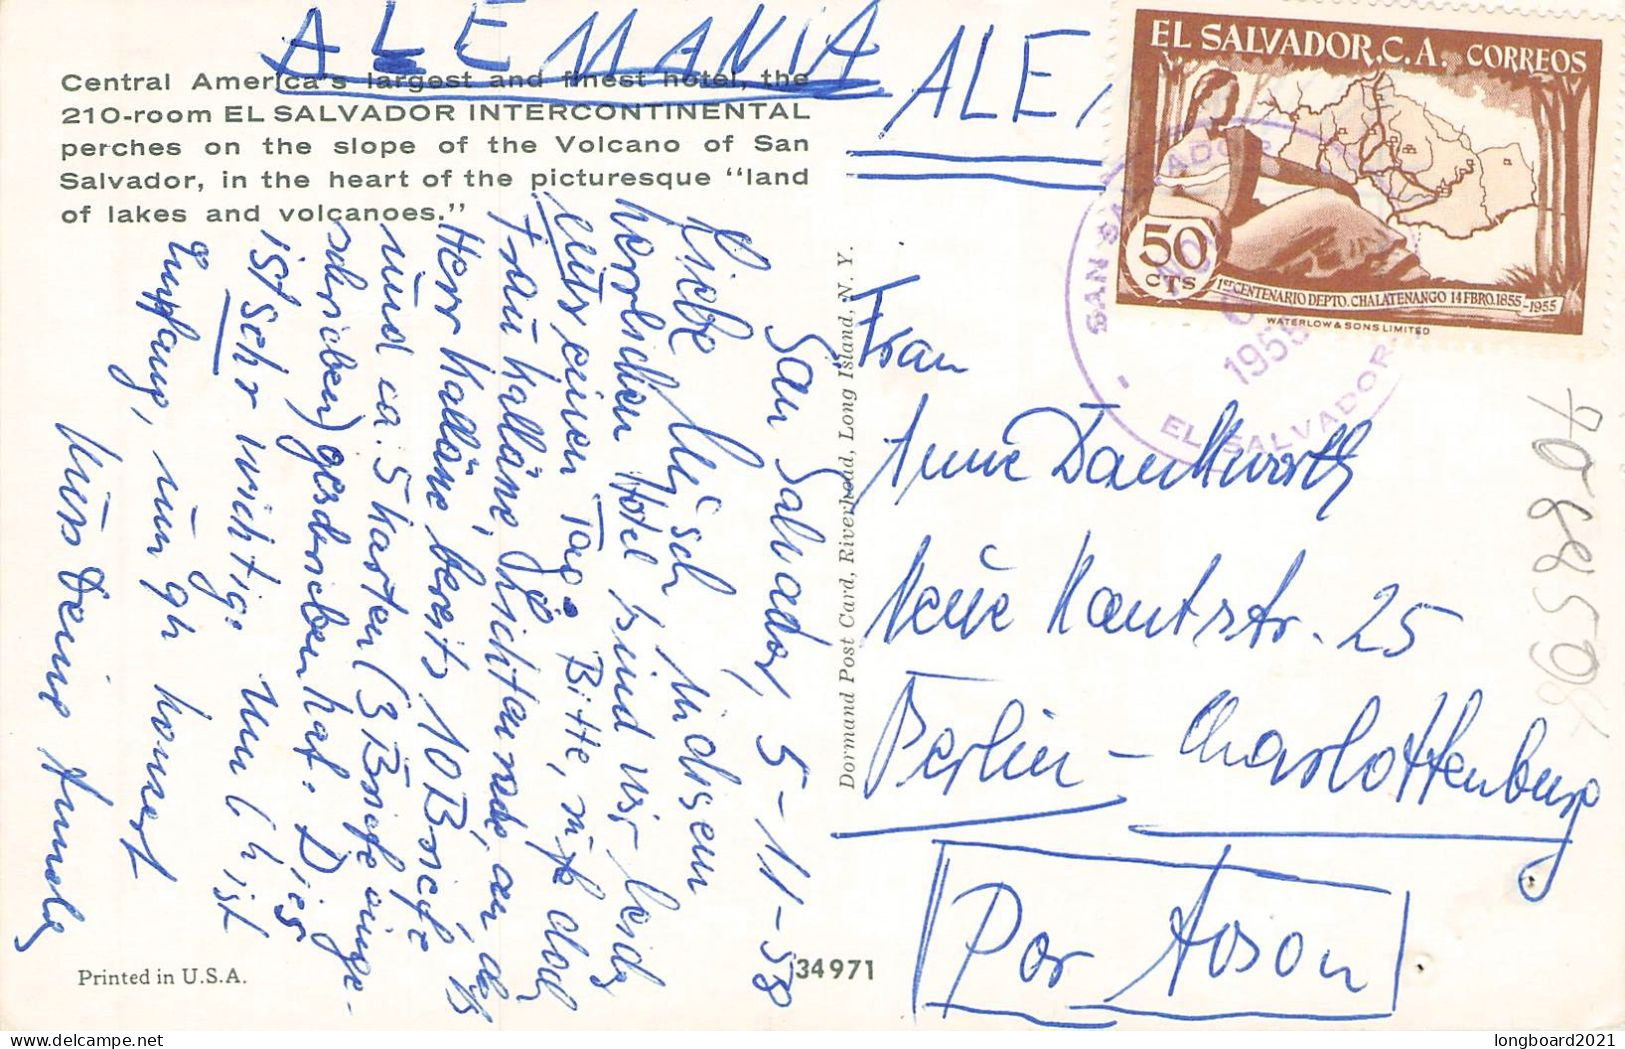 ALEMANIA
ALE
Central America's largest and finest hotel, the
210-room EL SALVADOR INTERCONTINENTAL
perches on the slope of the Volcano of San
Salvador, in the heart of the picturesque "land
of lakes and volcanoes."
San Salvador, 5-11-58
Liebe in diesem
herrlichen Hotel sind wir leider
nur einen Tag. Bitte, doch
Frau Kalläne, an, daß
Herr Kalläne bereits 10 Briefe
und ca. 5 Karten (3 Briefe einge-
schrieben) geschrieben hat. Dies
ist sehr wichtig. Nun ist
Empfang,
Deine
Printed in U.S.A.
34971
Dormand Post Card, Riverhead, Long Island, N. Y.
EL SALVADOR, C.A. CORREOS
50
CTS
1er CENTENARIO DEPTO. CHALATENANGO 14 FBRO. 1855-1955
WATERLOW & SONS LIMITED
SAN SALVADOR
EL SALVADOR
Frau
Anne Dankworth
Neue Kantstr. 25
Berlin - Charlottenburg
Por Avion
longboard2021